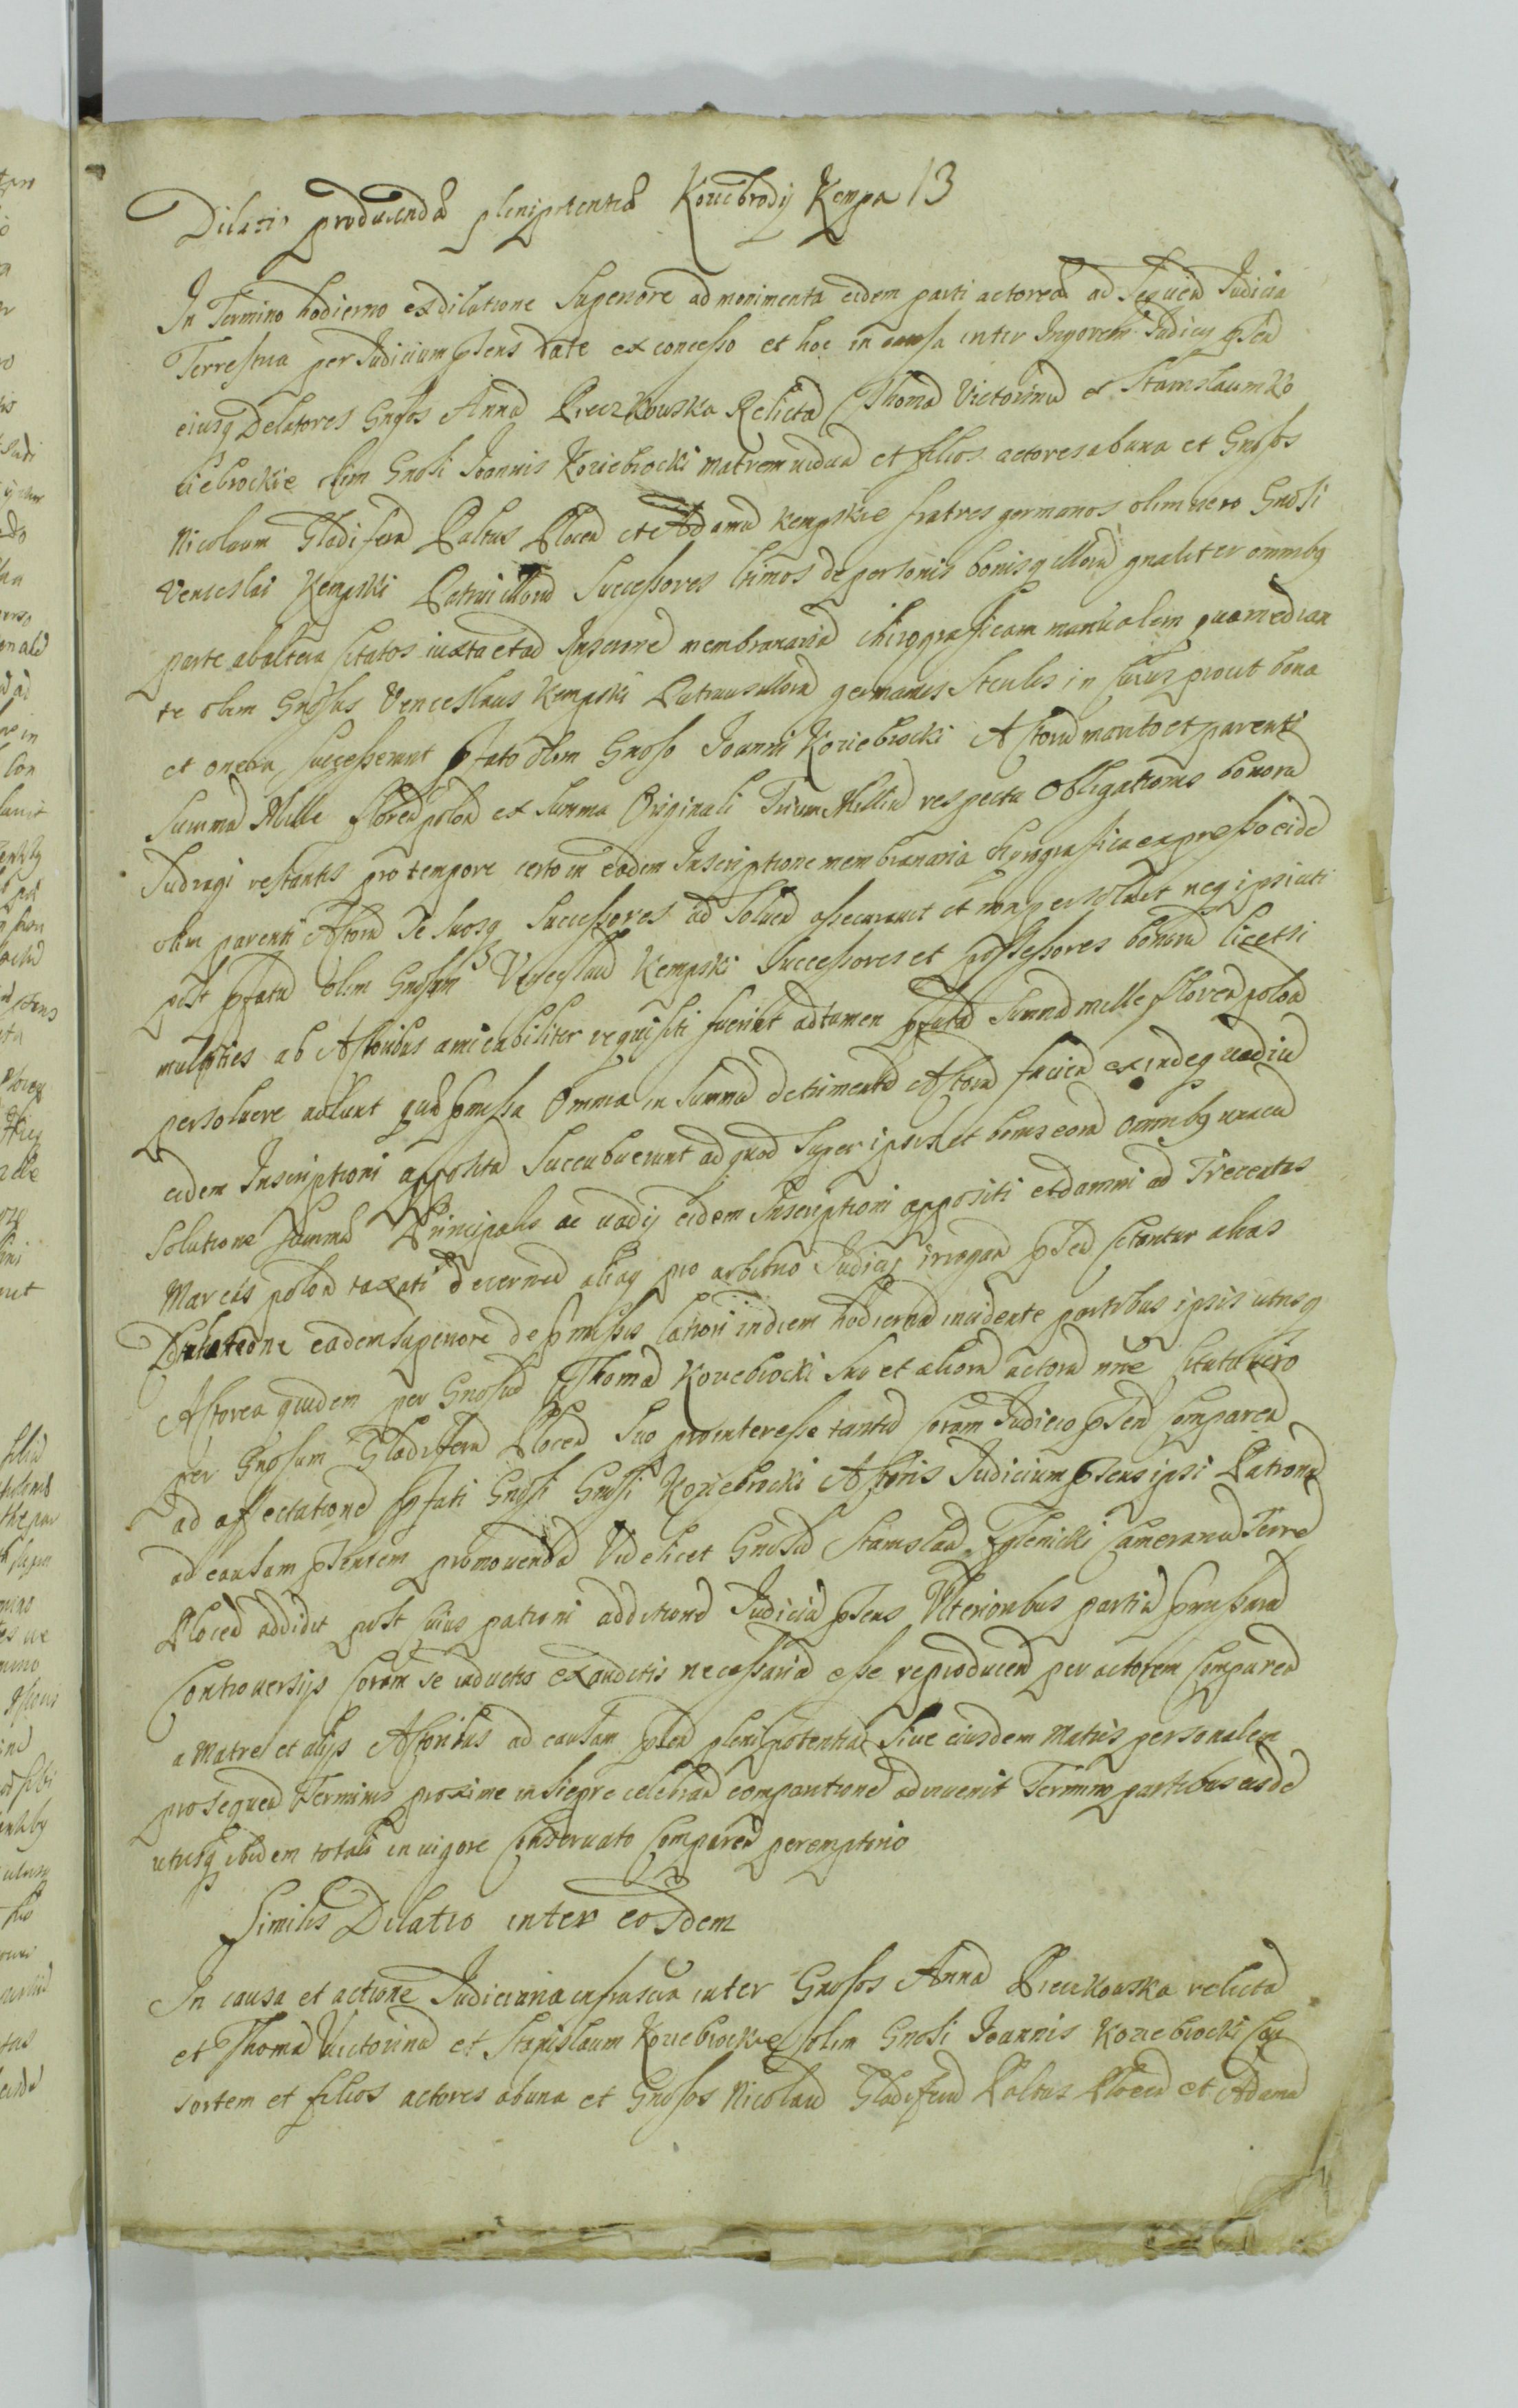 Dilatio producendae plenipotentiae Koziebrodij Kempa 13
In Termino hodierno ex dilatione superiore ad monimenta eidem parti actoreae ad sequen Judicia
Terrestria per Judicium pñens date ex concesso et hoc in causa inter Insgorem Judicij pñen
eiusq Delatores Gnosos Anna Pieczkowska Relicta Thoma Victorinu et Stanislaum Ko
ziebrockie olim Gnosi Joannis Koziebrocki matrem viduā et filios actores ab una et Gnosos
Nicolaum Gladiferū Paltus Plocen et Adamū Kempskie fratres germanos olim vero Gnosi
Venceslai Kempski Patrui illorū Successores ltimos de personis bonisq illorū gnaliter omnibq
parte ab altera citatos iuxta et ad Inscrore membranariā chirograficam manualem qua median
te olim Gnosus Venceslaus Kempski Patruus illorū germanus sterilis in cuius prout bona
et onera successerunt pfato olim Gnoso Joanni Koziebrocki Actorū marito et parenti
Summā Mille florenū polon ex summa Originali Trium Milliū respectu Obligationis bonorū
Sudragi restantis pro tempore certo in eadem Inscriptione membranaria chyrografica expresso eidē
olim parenti Actorū se suosq Successores ad solven assecuravit et non persolvit neq ipsi uti
post pfatū olim Gnosum Venceslaū Kempski Successores et possessores bonorū licet si
multoties ab Actoribus amicabiliter requisiti fuerint ad tamen pfatā Summā mille florenū polon
persolvere nolunt quae pmissa Omnia in Summū detrimentū Actorū faciun exindeq vadiū
eidem Inscriptioni appositū Succubuerunt ad quod super ipsis et bonis eorū omnibq unacū
Solutione Summae Principalis ac vadij eidem Inscriptioni appositi et damni ad Trecentas
Marcas polon taxati decernen aliaq pro arbitrio Judicij irrogan pñen citantur alias
Dilatione eadem superiore de pmissis latiori in diem hodiernā incidente partibus ipsis utrisq
Actorea quidem per Gnosū Thomā Koziebrocki suo et aliorū actorū nñe citata vero
per Gnosum Gladiferū Plocen suo pro interesse tantū coram Judicio pñen comparen
ad affectationē pfati Gnosi Gnosi Koziebrocki Actoris Judicium pñens ipsi Patronū
ad causam pñentem promovendā Videlicet Gnosū Stanislaū Zglenicki Camerariū Terrae
Plocen addidit post cuius patroni additionē Judiciū pñens Ulterioribus partiū pmissarū
Controversijs coram se inductis exauditis necessariā esse reproducen per actorem comparen
a Matre et alijs Actoribus ad causam pñen plenipotentiā sive eiusdem matris personalem
prosequen Terminis proxime in Siepre celebran comparitionē adinvenit Terminū partibus eisdē
utrisq ibidem totali in vigore conservato comparen peremptorio
Similis Dilatio inter eosdem
In causa et actione Judiciaria infrascra inter Gnosos Anna Pieczkowska relicta
et Thomā Victorinū et Stanislaum Koziebrockie olim Gnosi Joannis Koziebrocki Con
sortem et filios actores ab una et Gnosos Nicolaū Gladiferū Paltus Plocen et Adamū